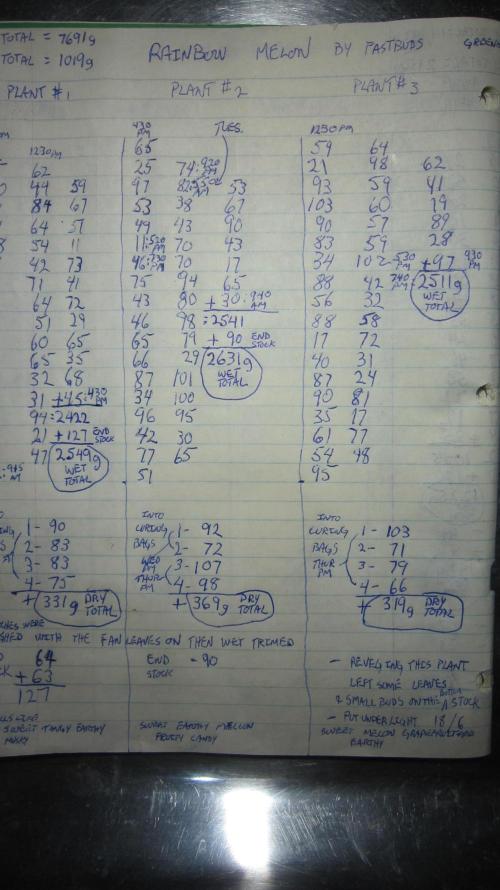 TOTAL = 7691g
TOTAL = 1019g
RAINBOW MELON BY FASTBUDS
PLANT #1
1230 PM
62
44 59
84 67
64 57
54 11
42 73
71 41
64 72
51 29
60 65
65 35
32 68
31 +45:430 PM
94:2422
21 +127 END STOCK
47 2549g WET TOTAL
1- 90
2- 83
3- 83
4- 75
+ 331g DRY TOTAL
PLANT #2
430 PM TUES.
65
25 74:920 PM
97 53
53 38 67
49 43 90
11:520 PM 70 43
46:730 PM 70 17
75 94 65
43 80 +30:940 AM
46 98:2541
65 79 +90 END STOCK
66 29 2631g WET TOTAL
87 101
34 100
96 95
42 30
77 65
51
INTO CURING BAGS
WED AM
THUR PM
1- 92
2- 72
3- 107
4- 98
+ 369g DRY TOTAL
PLANT #3
1230 PM
59 64
21 98 62
93 59 41
103 60 19
90 57 89
83 59 28
34 102:530 PM +97 930 PM
88 42 740 AM:2511g WET TOTAL
56 32
88 58
17 72
40 31
87 24
90 81
35 17
61 77
54 48
95
INTO CURING BAGS
THUR PM
1- 103
2- 71
3- 79
4- 66
+ 319g DRY TOTAL
WITH THE FAN LEAVES ON THEN WET TRIMED
64
+63
127
SWEET TANGY EARTHY
MUSKY
END STOCK - 90
SWEET EARTHY MELLON
FRUITY CANDY
- REVEGING THIS PLANT
LEFT SOME LEAVES
2 SMALL BUDS ON THE BOTTOM STOCK
- PUT UNDER LIGHT 18/6
SWEET MELON
EARTHY